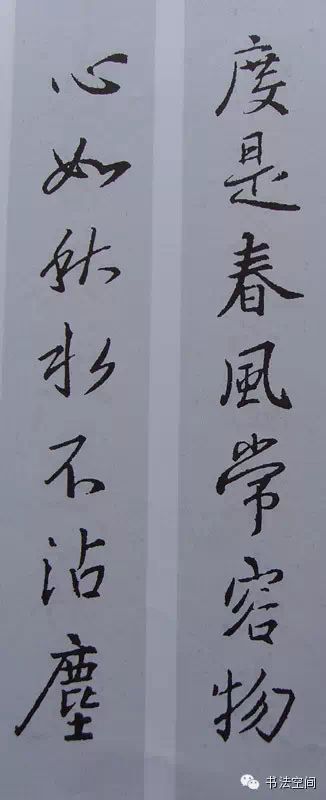 度是春風常容物
心如秋水不沾塵
书法空间